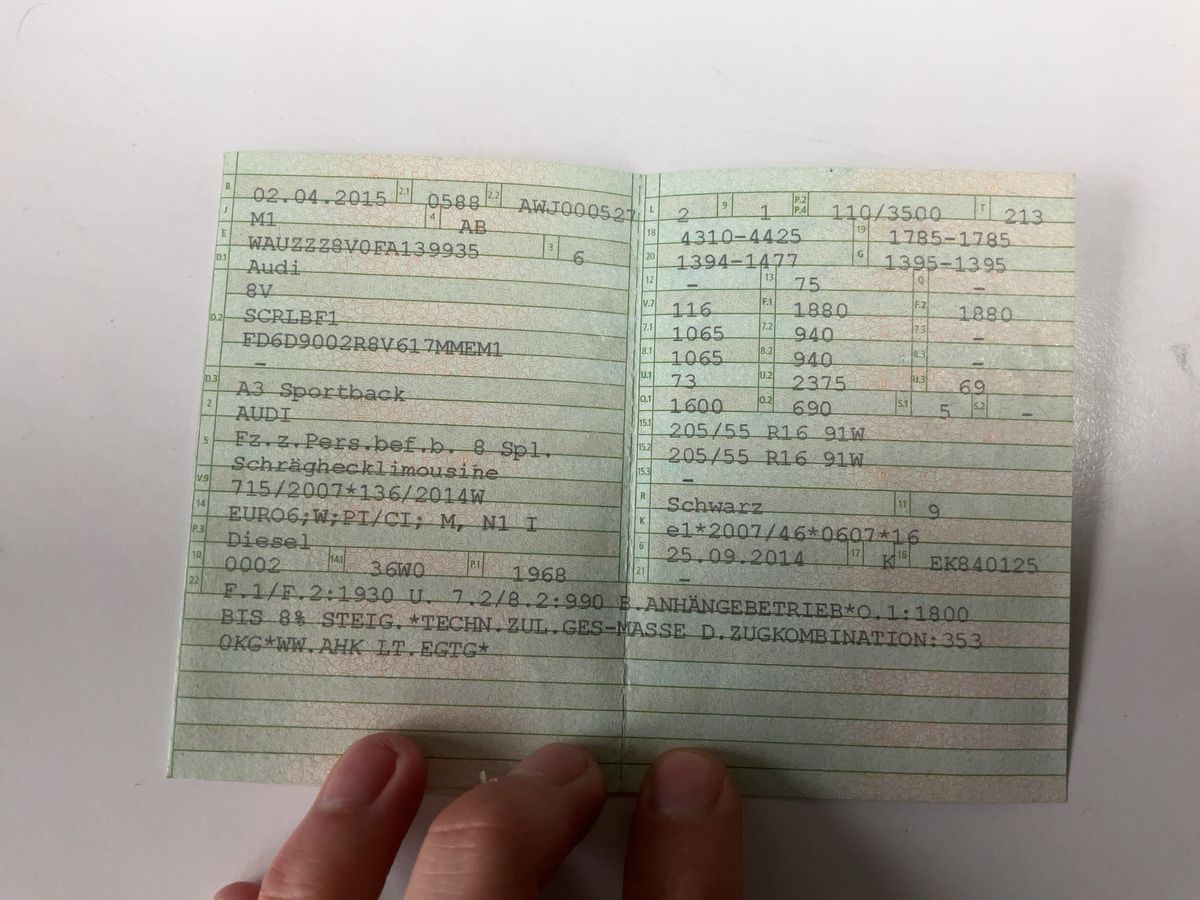 B 02.04.2015 2.1 0588 2.2 AWJ000527
J M1 4 AB
E WAUZZZ8V0FA139935 3 6
D.1 Audi
8V
D.2 SCRLBF1
FD6D9002R8V617MMEM1
–
D.3 A3 Sportback
2 AUDI
5 Fz.z.Pers.bef.b. 8 Spl.
Schräghecklimousine
V.9 715/2007*136/2014W
14 EURO6;W;PI/CI; M, N1 I
P.3 Diesel
10 0002 14.1 36W0 P.1 1968
L 2 9 1 P.2 P.4 110/3500 T 213
18 4310-4425 19 1785-1785
20 1394-1477 G 1395-1395
12 – 13 75 Q –
V.7 116 F.1 1880 F.2 1880
7.1 1065 7.2 940 7.3 –
8.1 1065 8.2 940 8.3 –
U.1 73 U.2 2375 U.3 69
O.1 1600 O.2 690 S.1 5 S.2 –
15.1 205/55 R16 91W
15.2 205/55 R16 91W
15.3 –
R Schwarz 11 9
K e1*2007/46*0607*16
6 25.09.2014 17 K 16 EK840125
21 –
22 F.1/F.2:1930 U. 7.2/8.2:990 B.ANHÄNGEBETRIEB*O.1:1800
BIS 8% STEIG.*TECHN.ZUL.GES-MASSE D.ZUGKOMBINATION:353
0KG*WW.AHK LT.EGTG*